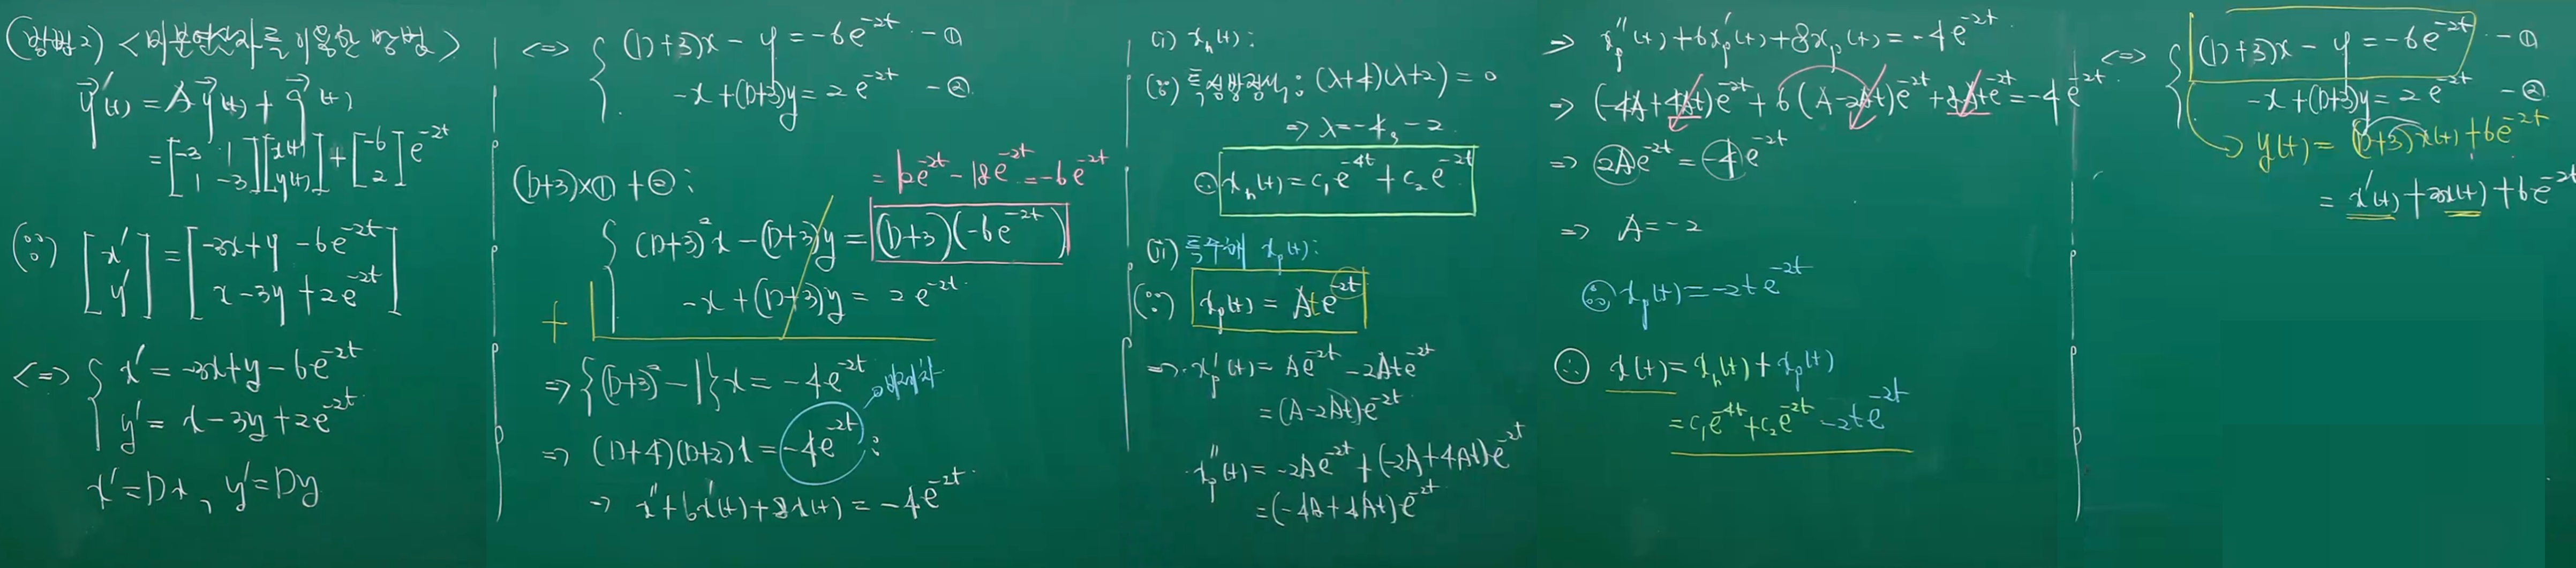 (방법2) <미분연산자를 이용한 방법>
y⃗'(t) = A y⃗(t) + g⃗(t)
= [-3 1; 1 -3] [x(t); y(t)] + [-6; 2] e^{-2t}
(∵) [x'; y'] = [-3x+y-6e^{-2t}; x-3y+2e^{-2t}]
<=> { x' = -3x+y-6e^{-2t}
y' = x-3y+2e^{-2t}
x'=Dx, y'=Dy
<=> { (D+3)x - y = -6e^{-2t} -①
-x+(D+3)y = 2e^{-2t} -②
(D+3)×① + ② :
= 12e^{-2t} - 18e^{-2t} = -6e^{-2t}
{ (D+3)²x - (D+3)y = (D+3)(-6e^{-2t})
+ -x + (D+3)y = 2e^{-2t}
=> {(D+3)² - 1}x = -4e^{-2t}
=> (D+4)(D+2)x = -4e^{-2t} :
=> x''+6x'(t)+8x(t) = -4e^{-2t}
(i) x_h(t) :
(∵) 특성방정식 : (λ+4)(λ+2) = 0
=> λ = -4, -2
∴ x_h(t) = c₁e^{-4t} + c₂e^{-2t}
(ii) 특수해 x_p(t) :
(∵) x_p(t) = Ate^{-2t}
=> x_p'(t) = Ae^{-2t} - 2Ate^{-2t}
= (A-2At)e^{-2t}
x_p''(t) = -2Ae^{-2t} + (-2A+4At)e^{-2t}
= (-4A+4At)e^{-2t}
=> x_p''(t)+6x_p'(t)+8x_p(t) = -4e^{-2t}
=> (-4A+4At)e^{-2t} + 6(A-2At)e^{-2t} + 8Ate^{-2t} = -4e^{-2t}
=> 2Ae^{-2t} = -4e^{-2t}
=> A = -2
∴ x_p(t) = -2te^{-2t}
∴ x(t) = x_h(t) + x_p(t)
= c₁e^{-4t} + c₂e^{-2t} - 2te^{-2t}
<=> { (D+3)x - y = -6e^{-2t} -①
-x+(D+3)y = 2e^{-2t} -②
y(t) = (D+3)x(t) + 6e^{-2t}
= x'(t) + 3x(t) + 6e^{-2t}